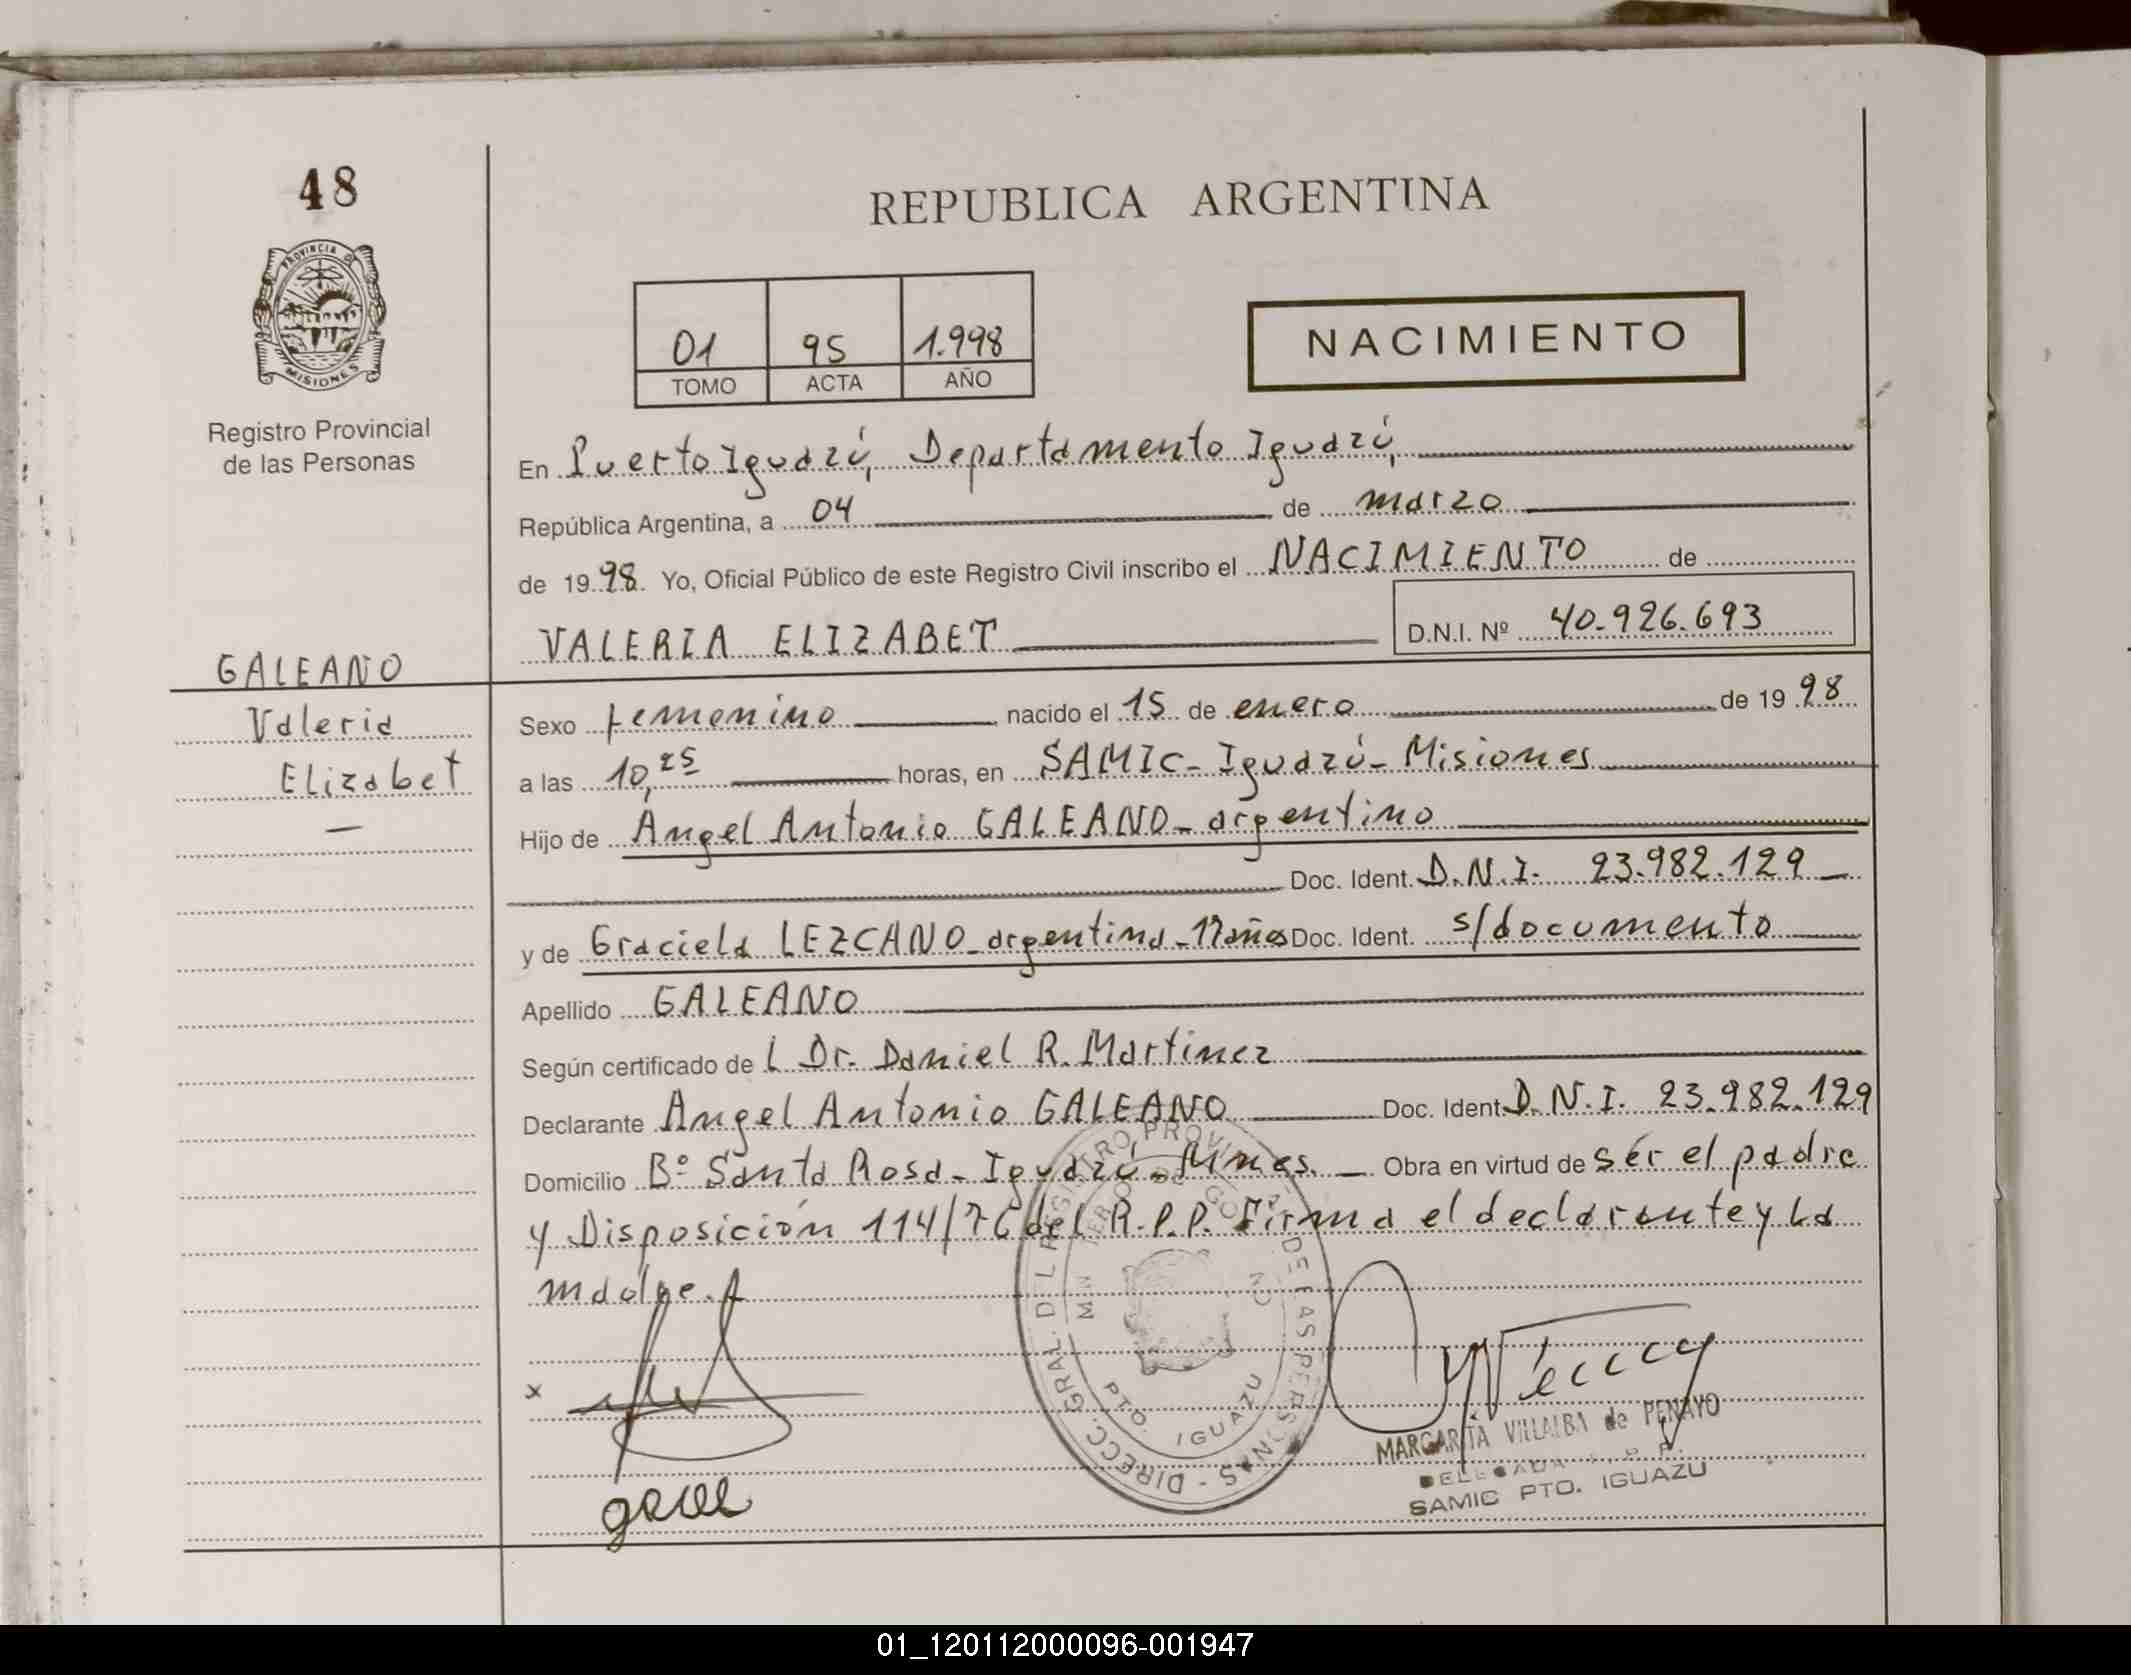 48
REPUBLICA ARGENTINA
PROVINCIA DE
MISIONES
01 95 1.998
TOMO ACTA AÑO
NACIMIENTO
Registro Provincial
de las Personas
En Puerto Iguazú, Departamento Iguazú,
República Argentina, a 04 de marzo
de 1998. Yo, Oficial Público de este Registro Civil inscribo el NACIMIENTO de
VALERIA ELIZABET D.N.I. Nº 40.926.693
GALEANO
Valeria
Elizabet
Sexo femenino nacido el 15 de enero de 1998
a las 10,25 horas, en SAMIC- Iguazú- Misiones
Hijo de Angel Antonio GALEANO- argentino
Doc. Ident. D.N.I. 23.982.129
y de Graciela LEZCANO- argentina-17años Doc. Ident. s/documento
Apellido GALEANO
Según certificado de l Dr. Daniel R. Martinez
Declarante Angel Antonio GALEANO Doc. Ident. D.N.I. 23.982.129
Domicilio Bº Santa Rosa- Iguazú- Mnes. Obra en virtud de sér el padre
y Disposición 114/76 del R.P.P. Firma el declarante y la
madre.
x
DIRECC. GRAL. DEL REGISTRO PROVINCIAL DE LAS PERSONAS -
PTO. IGUAZU
MARGARITA VILLALBA de PENAYO
SAMIC PTO. IGUAZU
01_120112000096-001947